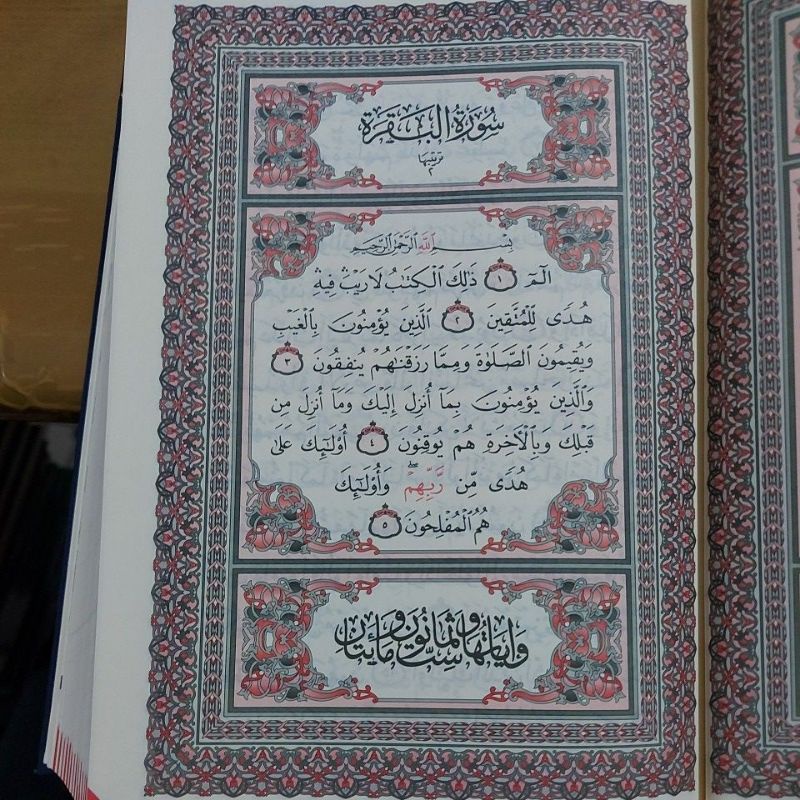 سُورَةُ الْبَقَرَةِ
تَرْتِيبُهَا
٢
بِسْمِ اللَّهِ الرَّحْمَٰنِ الرَّحِيمِ
الٓمٓ ١ ذَٰلِكَ الْكِتَٰبُ لَا رَيْبَ ۛ فِيهِ ۛ
هُدًى لِّلْمُتَّقِينَ ٢ الَّذِينَ يُؤْمِنُونَ بِالْغَيْبِ
وَيُقِيمُونَ الصَّلَوٰةَ وَمِمَّا رَزَقْنَٰهُمْ يُنفِقُونَ ٣
وَالَّذِينَ يُؤْمِنُونَ بِمَآ أُنزِلَ إِلَيْكَ وَمَآ أُنزِلَ مِن
قَبْلِكَ وَبِالْأٓخِرَةِ هُمْ يُوقِنُونَ ٤ أُوْلَٰٓئِكَ عَلَىٰ
هُدًى مِّن رَّبِّهِمْ ۖ وَأُوْلَٰٓئِكَ
هُمُ الْمُفْلِحُونَ ٥
وَآيَاتُهَا سِتٌّ وَثَمَانُونَ وَمِائَتَانِ